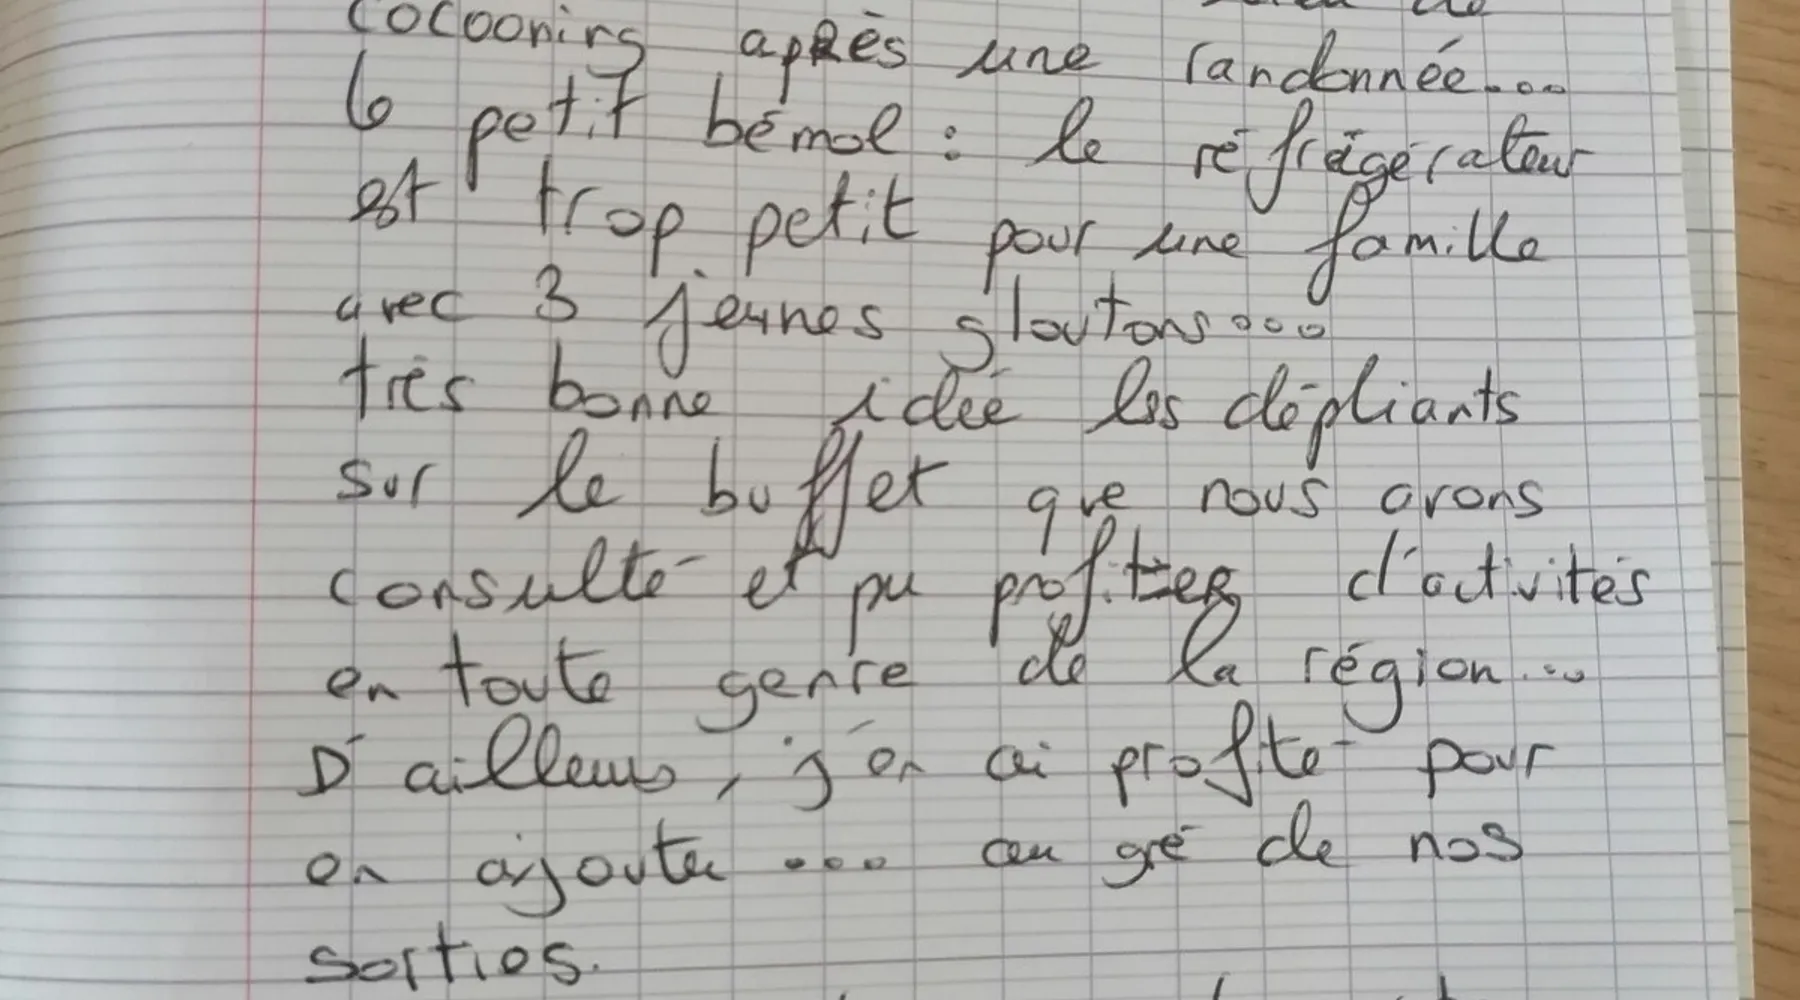 cocooning après une randonnée...
le petit bémol : le réfrigérateur
est trop petit pour une famille
avec 3 jeunes gloutons...
très bonne idée les dépliants
sur le buffet que nous avons
consulté et pu profiter d'activités
en toute genre de la région...
D'ailleurs, j'en ai profité pour
en ajouter ... au gré de nos
sorties.